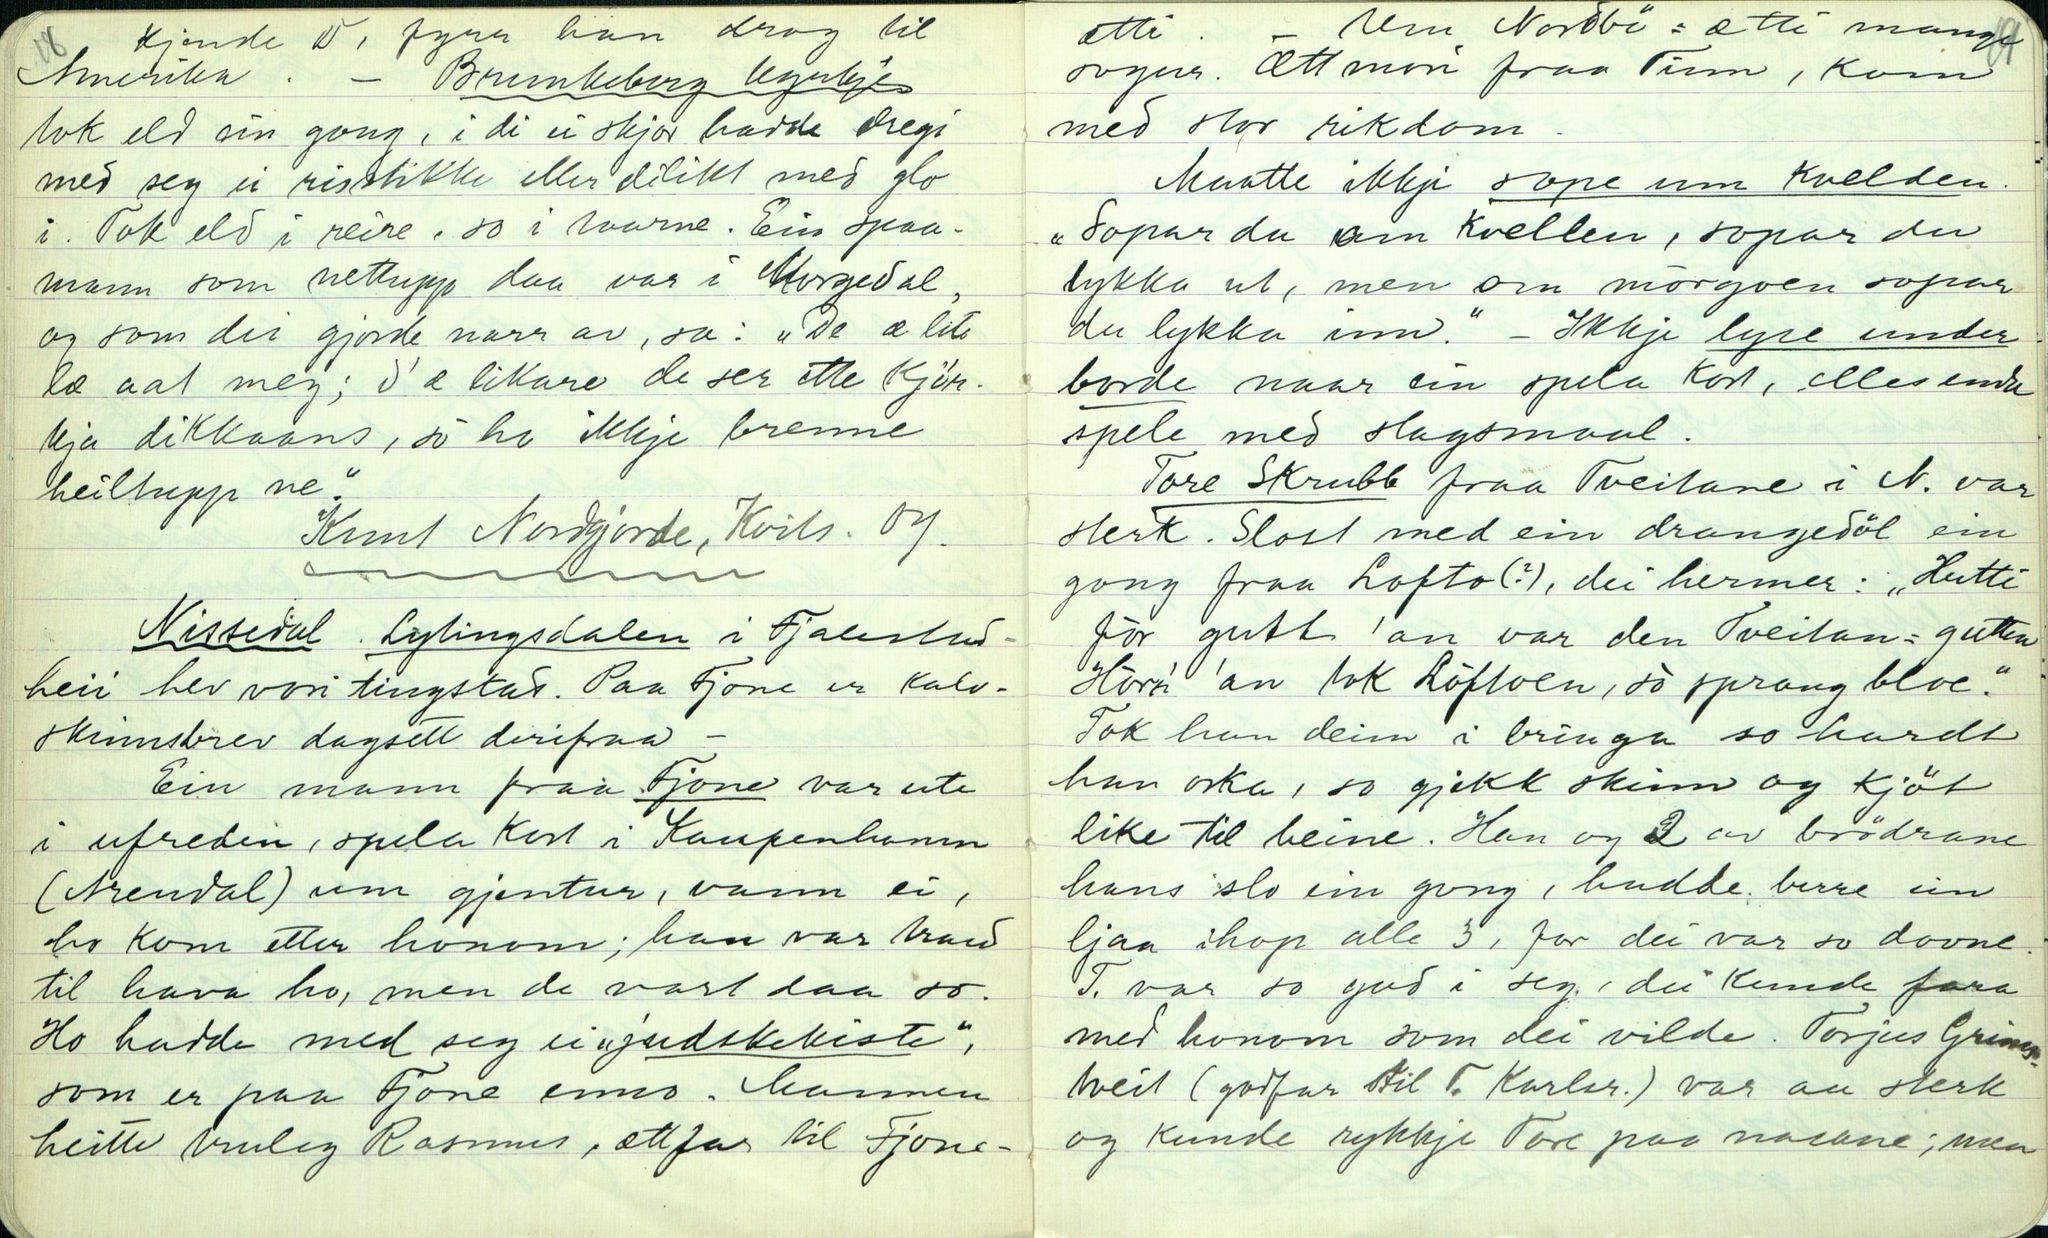 18
kjende D, fyrr han drog til
Amerika. – Brunkeberg kyrkje
tok eld ein gong, i di ei skjor hadde dregi
med seg ei risstikke eller dilikt med glo
i. Tok eld i reire, so i tarne. Ein spaa-
mann som nettupp daa var i Morgedal,
og som dei gjorde narr av, sa: „De æ lite
læ aat meg; d'æ likare de ser ette kjör-
kja dikkaans, so ho ikkje brenne
heiltupp ne."
Knut Nordgjorde, Kvits. 07.
Nissedal. Lytingsdalen i Fjalestad-
heii hev vori tingstad. Paa Fjone er kalv-
skinnsbrev dagsett derifraa –
Ein mann fraa Fjone var ute
i ufreden, spela kort i Kaupenhamn
(Arendal) um gjentur, vann ei,
ho kom etter honom; han var traud
til hava ho, men de vart daa so.
Ho hadde med seg ei „judskekiste",
som er paa Fjone enno. Mannen
heitte truleg Rasmus, ættfar til Fjone-
19
ætti. – Um Nordbö-ætti mange
sogur. Ættmori fraa Tinn, kom
med stor rikdom.
Maatte ikkje sope um kvelden.
„Sopar du om kvellen, sopar du
lykka ut, men om mörgoen sopar
du lykka inn." – Ikkje lyse under
borde naar ein spela kort, elles enda
spele med slagsmaal.
Tore Skrubb fraa Tveitane i N. var
sterk. Slost med ein drangedöl ein
gong fraa Lofto(?), dei hermer: „Hutti
för gutt 'an var den Tveitan-gutten
Hörn 'an tok Löftoen, so sprang bloe."
Tok han deim i bringa so hardt
han orka, so gjekk skinn og kjöt
like til beine. Han og 2 av brödrane
hans slo ein gong, hadde berre ein
ljaa ihop alle 3, for dei var so dovne.
T. var so god i seg, dei kunde fara
med honom som dei vilde. Torjus Grims-
tveit (godfar til T. Karlsr.) var au sterk
og kunde rykkje Tore paa nasane; men